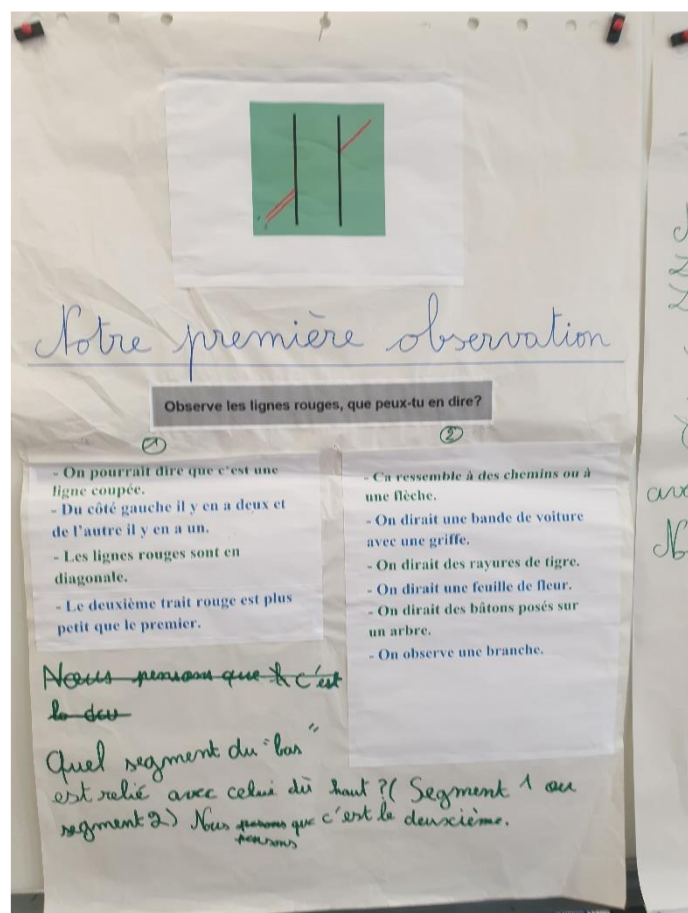 Notre première observation
Observe les lignes rouges, que peux-tu en dire?
1
- On pourrait dire que c'est une
ligne coupée.
- Du côté gauche il y en a deux et
de l'autre il y en a un.
- Les lignes rouges sont en
diagonale.
- Le deuxième trait rouge est plus
petit que le premier.
2
- Ca ressemble à des chemins ou à
une flèche.
- On dirait une bande de voiture
avec une griffe.
- On dirait des rayures de tigre.
- On dirait une feuille de fleur.
- On dirait des bâtons posés sur
un arbre.
- On observe une branche.
Nous pensons que c'est
Quel segment du "bas"
est relié avec celui du haut ? ( Segment 1 ou
segment 2) Nous que c'est le deuxième.
pensons